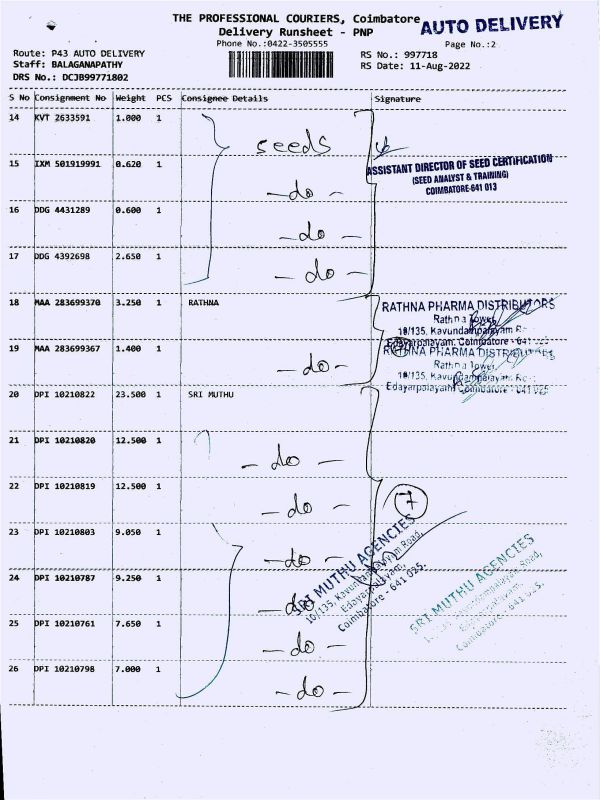 THE PROFESSIONAL COURIERS, Coimbatore
AUTO DELIVERY
Delivery Runsheet - PNP
Phone No.:0422-3505555
Page No.:2
Route: P43 AUTO DELIVERY
RS No.: 997718
Staff: BALAGANAPATHY
RS Date: 11-Aug-2022
DRS No.: DCJB99771802
S No Consignment No Weight PCS Consignee Details Signature
14 KVT 2633591 1.000 1 seeds
15 IXM 501919991 0.620 1 -do-
ASSISTANT DIRECTOR OF SEED CERTIFICATION
(SEED ANALYST & TRAINING)
COIMBATORE-641 013
16 DDG 4431289 0.600 1 -do-
17 DDG 4392698 2.650 1 -do-
18 MAA 283699370 3.250 1 RATHNA
RATHNA PHARMA DISTRIBUTORS
Rathna Tower,
10/135, Kavundampalayam
Edayarpalayam, Coimbatore - 641 025
19 MAA 283699367 1.400 1 -do-
RATHNA PHARMA DISTRIBUTORS
Rathna Tower,
10/135, Kavundampalayam
Edayarpalayam, Coimbatore - 641 025
20 DPI 10210822 23.500 1 SRI MUTHU
21 DPI 10210820 12.500 1 -do-
22 DPI 10210819 12.500 1 -do-
7
23 DPI 10210803 9.050 1 -do-
24 DPI 10210787 9.250 1 -do-
SRI MUTHU AGENCIES
10/135, Kavundampalayam Road,
Edayarpalayam,
Coimbatore - 641 025.
SRI MUTHU AGENCIES
25 DPI 10210761 7.650 1 -do-
26 DPI 10210798 7.000 1 -do-